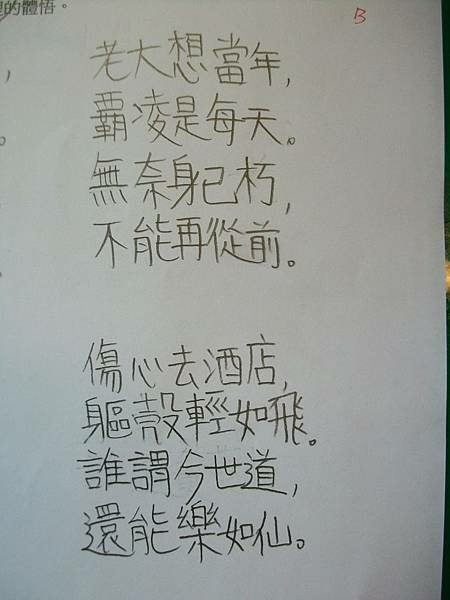 的體悟。
B
老大想當年，
霸凌是每天。
無奈身已朽，
不能再從前。
傷心去酒店，
軀殼輕如飛。
誰謂今世道，
還能樂如仙。